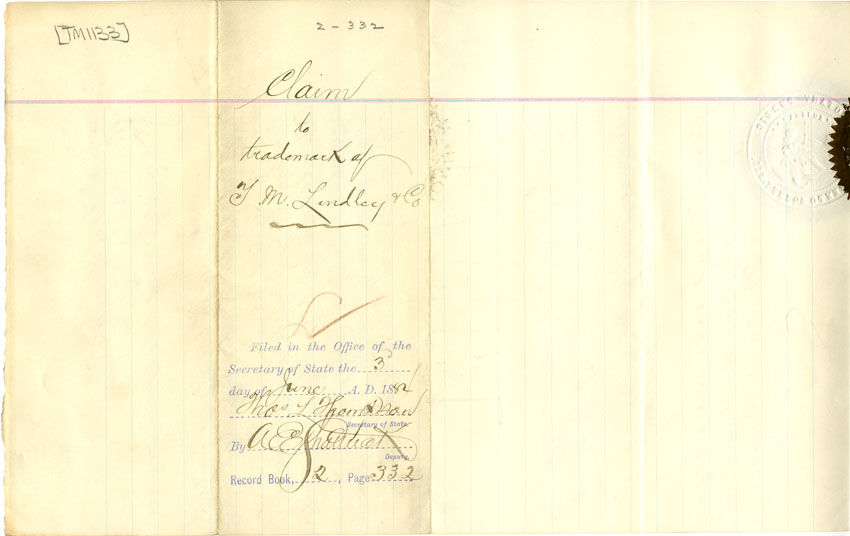 [TM1133]
2 - 332
Claim
to
trademark of
T. M. Lindley & Co
Filed in the Office of the
Secretary of State the 3
day of June A. D. 188
Thos L Thompson
Secretary of State
By A E Shattuck
Deputy.
Record Book, 2, Page 332